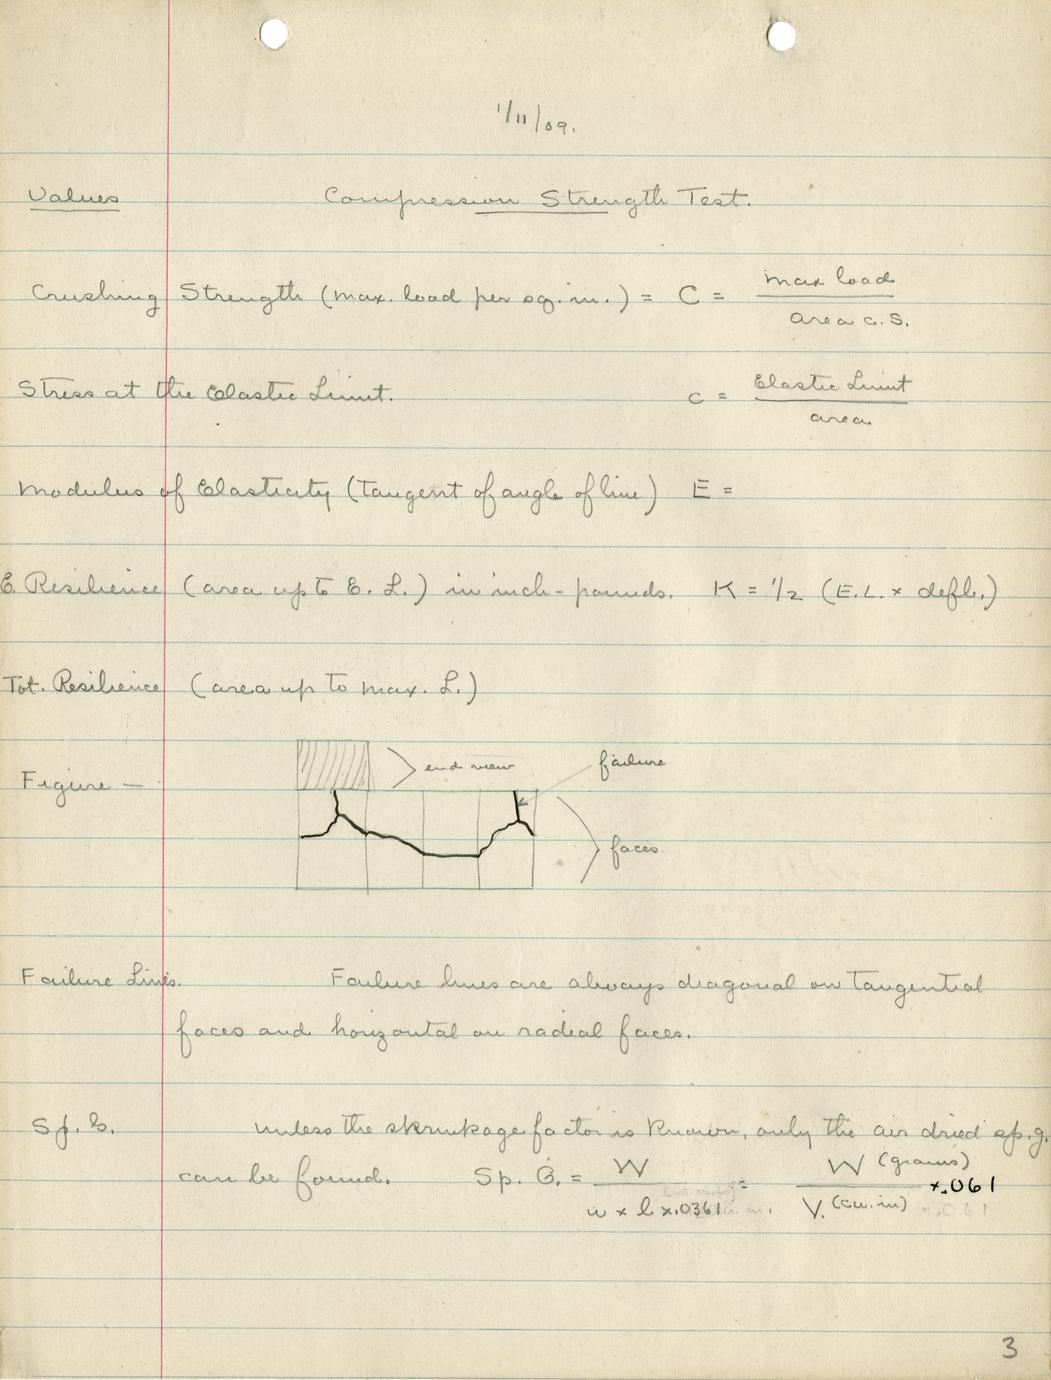 1/11/09.
Values Compression Strength Test.
Crushing Strength (max. load per sq. in.) = C = max load / area c. S.
Stress at the Elastic Limit. c = Elastic Limit / area
Modulus of Elasticity (tangent of angle of line) E =
E. Resilience (area up to E. L.) in inch-pounds. K = 1/2 (E.L. x defl.)
Tot. Resilience (area up to max. L.)
Figure — end view failure
faces
Failure Lines. Failure lines are always diagonal on tangential
faces and horizontal on radial faces.
Sp. G. unless the shrinkage factor is known, only the air dried sp. g.
can be found. Sp. G. = W / w x l x .0361 = W (grams) / V. (cu. in) x .061
3